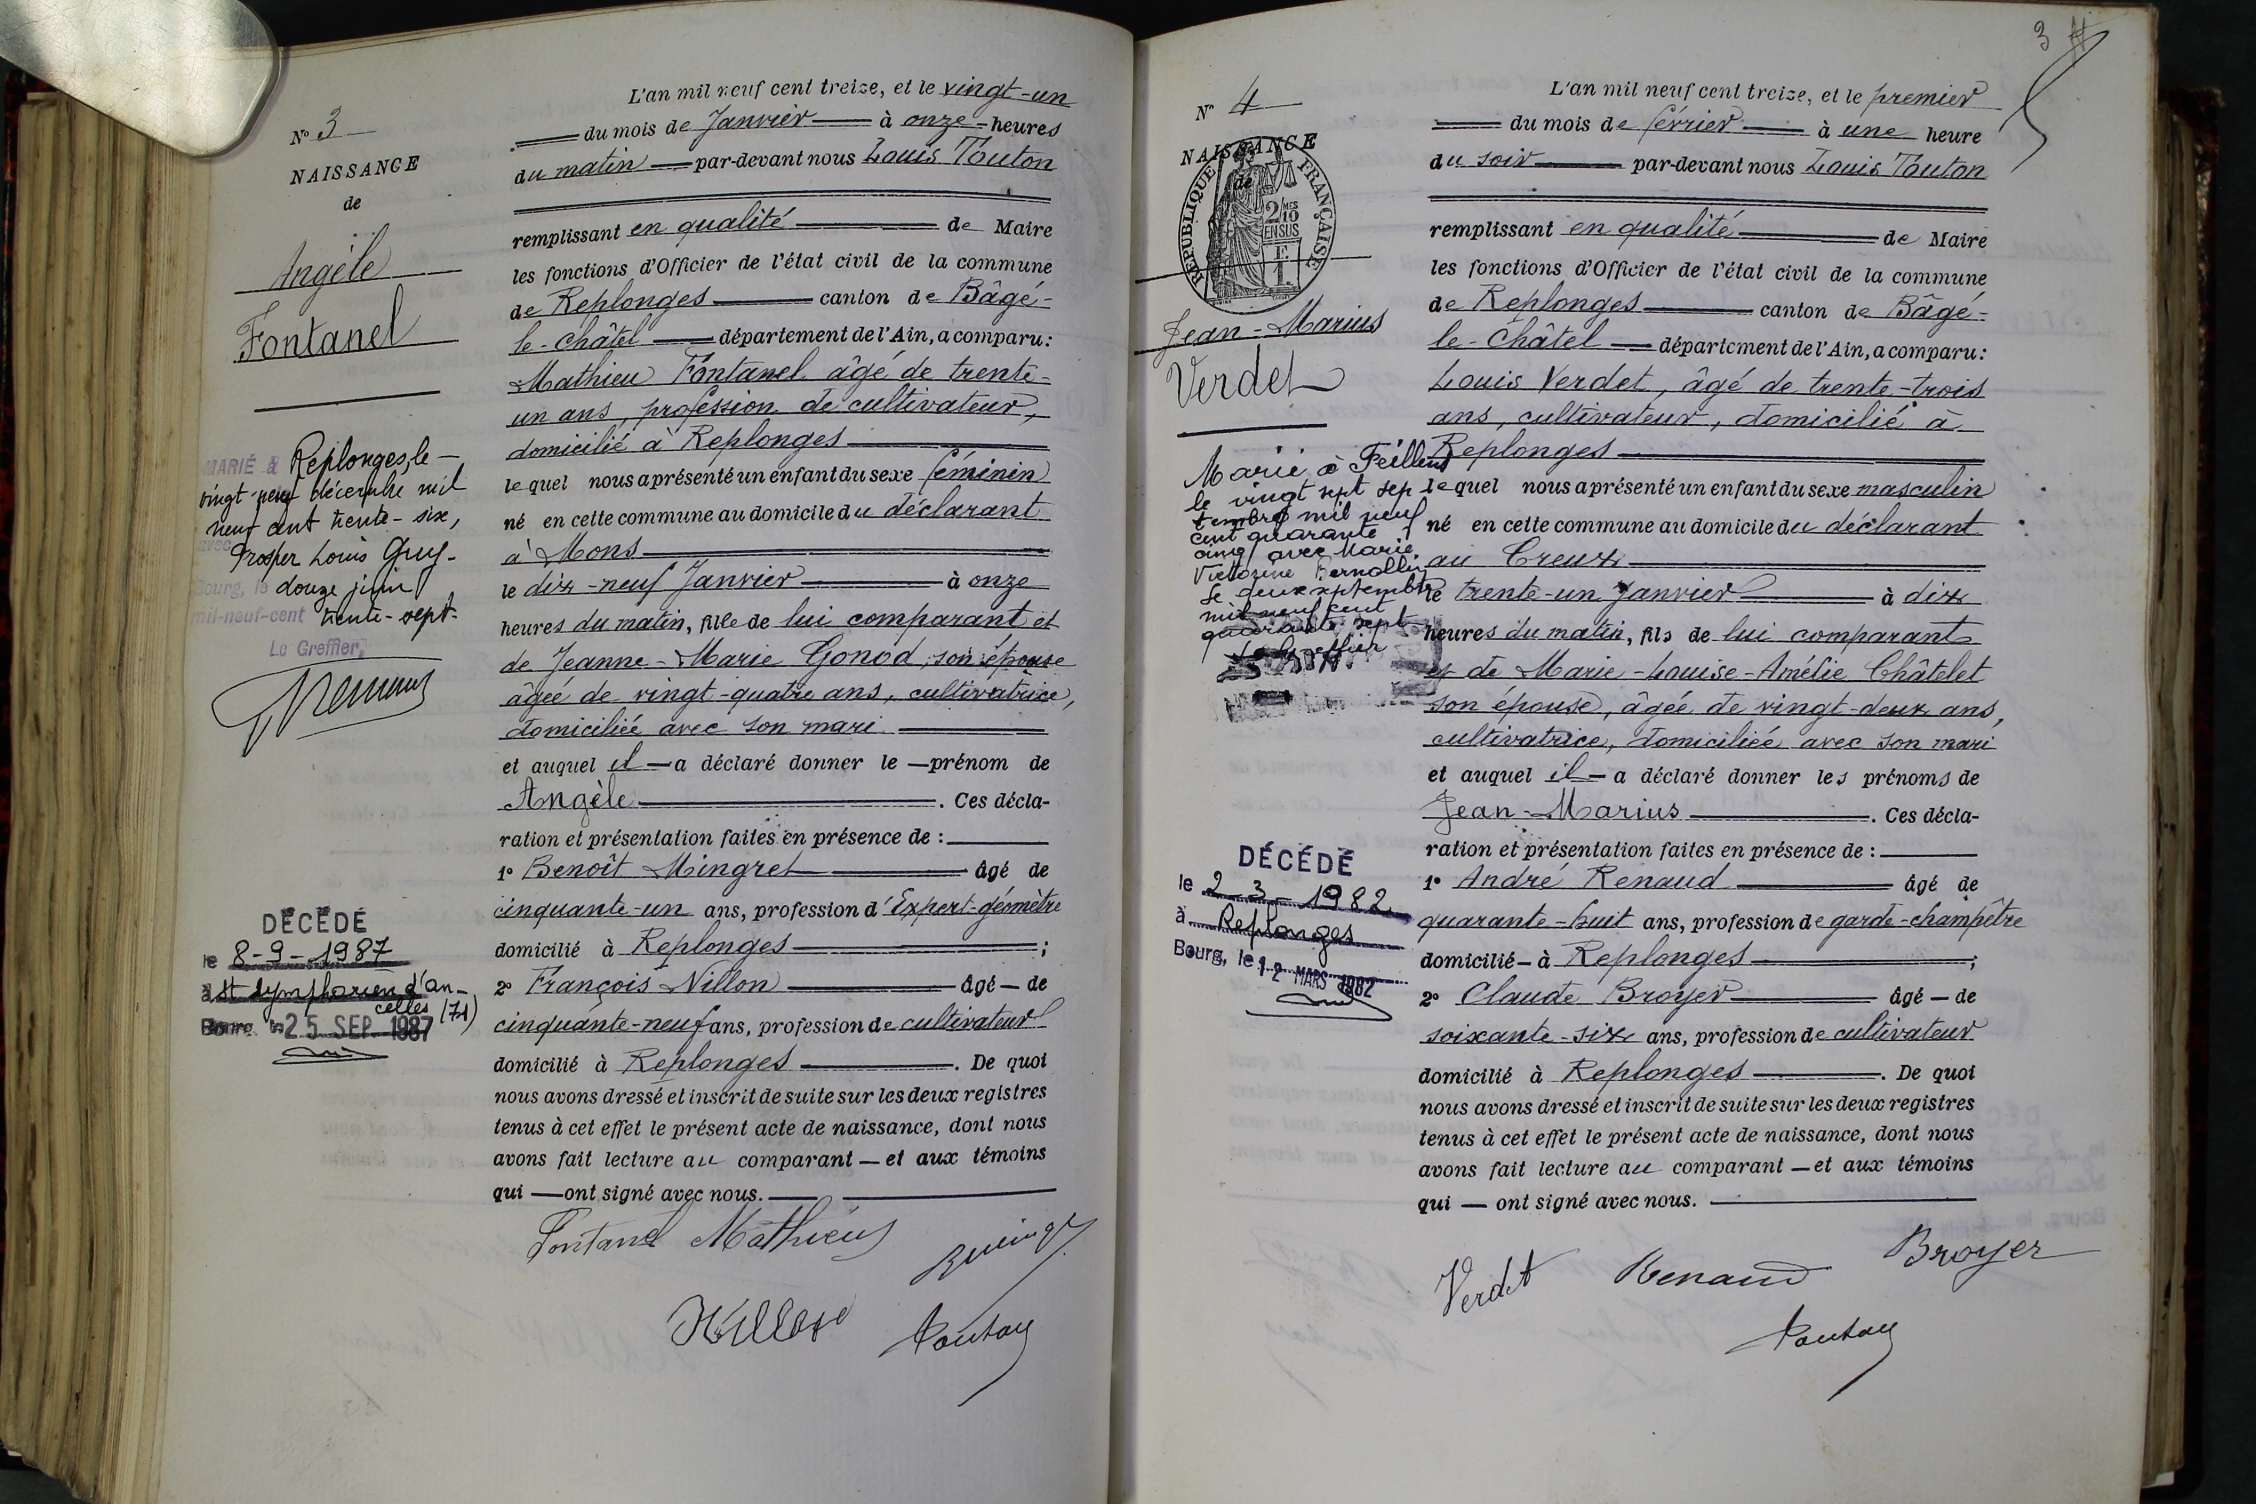 L'an mil neuf cent treize, et le vingt-un
N° 3
du mois de Janvier à onze heures
NAISSANCE
du matin par-devant nous Louis Touton
de
remplissant en qualité de Maire
Angèle
les fonctions d'Officier de l'état civil de la commune
Fontanel
de Replonges canton de Bâgé-
le-Châtel département de l'Ain, a comparu:
Mathieu Fontanel âgé de trente-
un ans, profession de cultivateur,
domicilié à Replonges
MARIÉ à Replonges, le
vingt-neuf décembre mil
neuf cent trente-six,
avec
Prosper Louis Guy-
Bourg, le douze juin
mil-neuf-cent trente-sept.
Le Greffier,
le quel nous a présenté un enfant du sexe féminin
né en cette commune au domicile du déclarant
à Mons
le dix-neuf Janvier à onze
heures du matin, fille de lui comparant et
de Jeanne-Marie Gonod, son épouse
âgée de vingt-quatre ans, cultivatrice,
domiciliée avec son mari
et auquel il a déclaré donner le prénom de
Angèle. Ces décla-
ration et présentation faites en présence de :
1° Benoît Mingret âgé de
cinquante-un ans, profession d'Expert-géomètre
domicilié à Replonges ;
2° François Nillon âgé de
cinquante-neuf ans, profession de cultivateur
domicilié à Replonges. De quoi
nous avons dressé et inscrit de suite sur les deux registres
tenus à cet effet le présent acte de naissance, dont nous
avons fait lecture au comparant et aux témoins
qui ont signé avec nous.
DÉCÉDÉ
le 8-9-1987
à St Symphorien d'An-
celles (71)
Bourg, le 25 SEP. 1987
Fontanel Mathieu
Nillon Touton
3
L'an mil neuf cent treize, et le premier
N° 4
du mois de février à une heure
NAISSANCE
de
RÉPUBLIQUE FRANÇAISE
2/10 EN SUS
du soir par-devant nous Louis Touton
remplissant en qualité de Maire
les fonctions d'Officier de l'état civil de la commune
de Replonges canton de Bâgé-
Jean-Marius
Verdet
le-Châtel département de l'Ain, a comparu:
Louis Verdet, âgé de trente-trois
ans, cultivateur, domicilié à
Replonges
Marié à Feillens
le vingt sept sep
tembre mil neuf
cent quarante
cinq avec Marie
Victorine
le deux septembre
mil neuf cent
quarante sept
Le Greffier
le quel nous a présenté un enfant du sexe masculin
né en cette commune au domicile du déclarant
au Creux
le trente-un Janvier à dix
heures du matin, fils de lui comparant
et de Marie-Louise-Amélie Châtelet
son épouse, âgée de vingt-deux ans,
cultivatrice, domiciliée avec son mari
et auquel il a déclaré donner les prénoms de
Jean-Marius. Ces décla-
ration et présentation faites en présence de :
1° André Renaud âgé de
quarante-huit ans, profession de garde-champêtre
domicilié à Replonges ;
2° Claude Broyer âgé de
soixante-six ans, profession de cultivateur
domicilié à Replonges. De quoi
nous avons dressé et inscrit de suite sur les deux registres
tenus à cet effet le présent acte de naissance, dont nous
avons fait lecture au comparant et aux témoins
qui ont signé avec nous.
DÉCÉDÉ
le 2-3-1982
à Replonges
Bourg, le 12 MARS 1982
Verdet Renaud Broyer
Touton